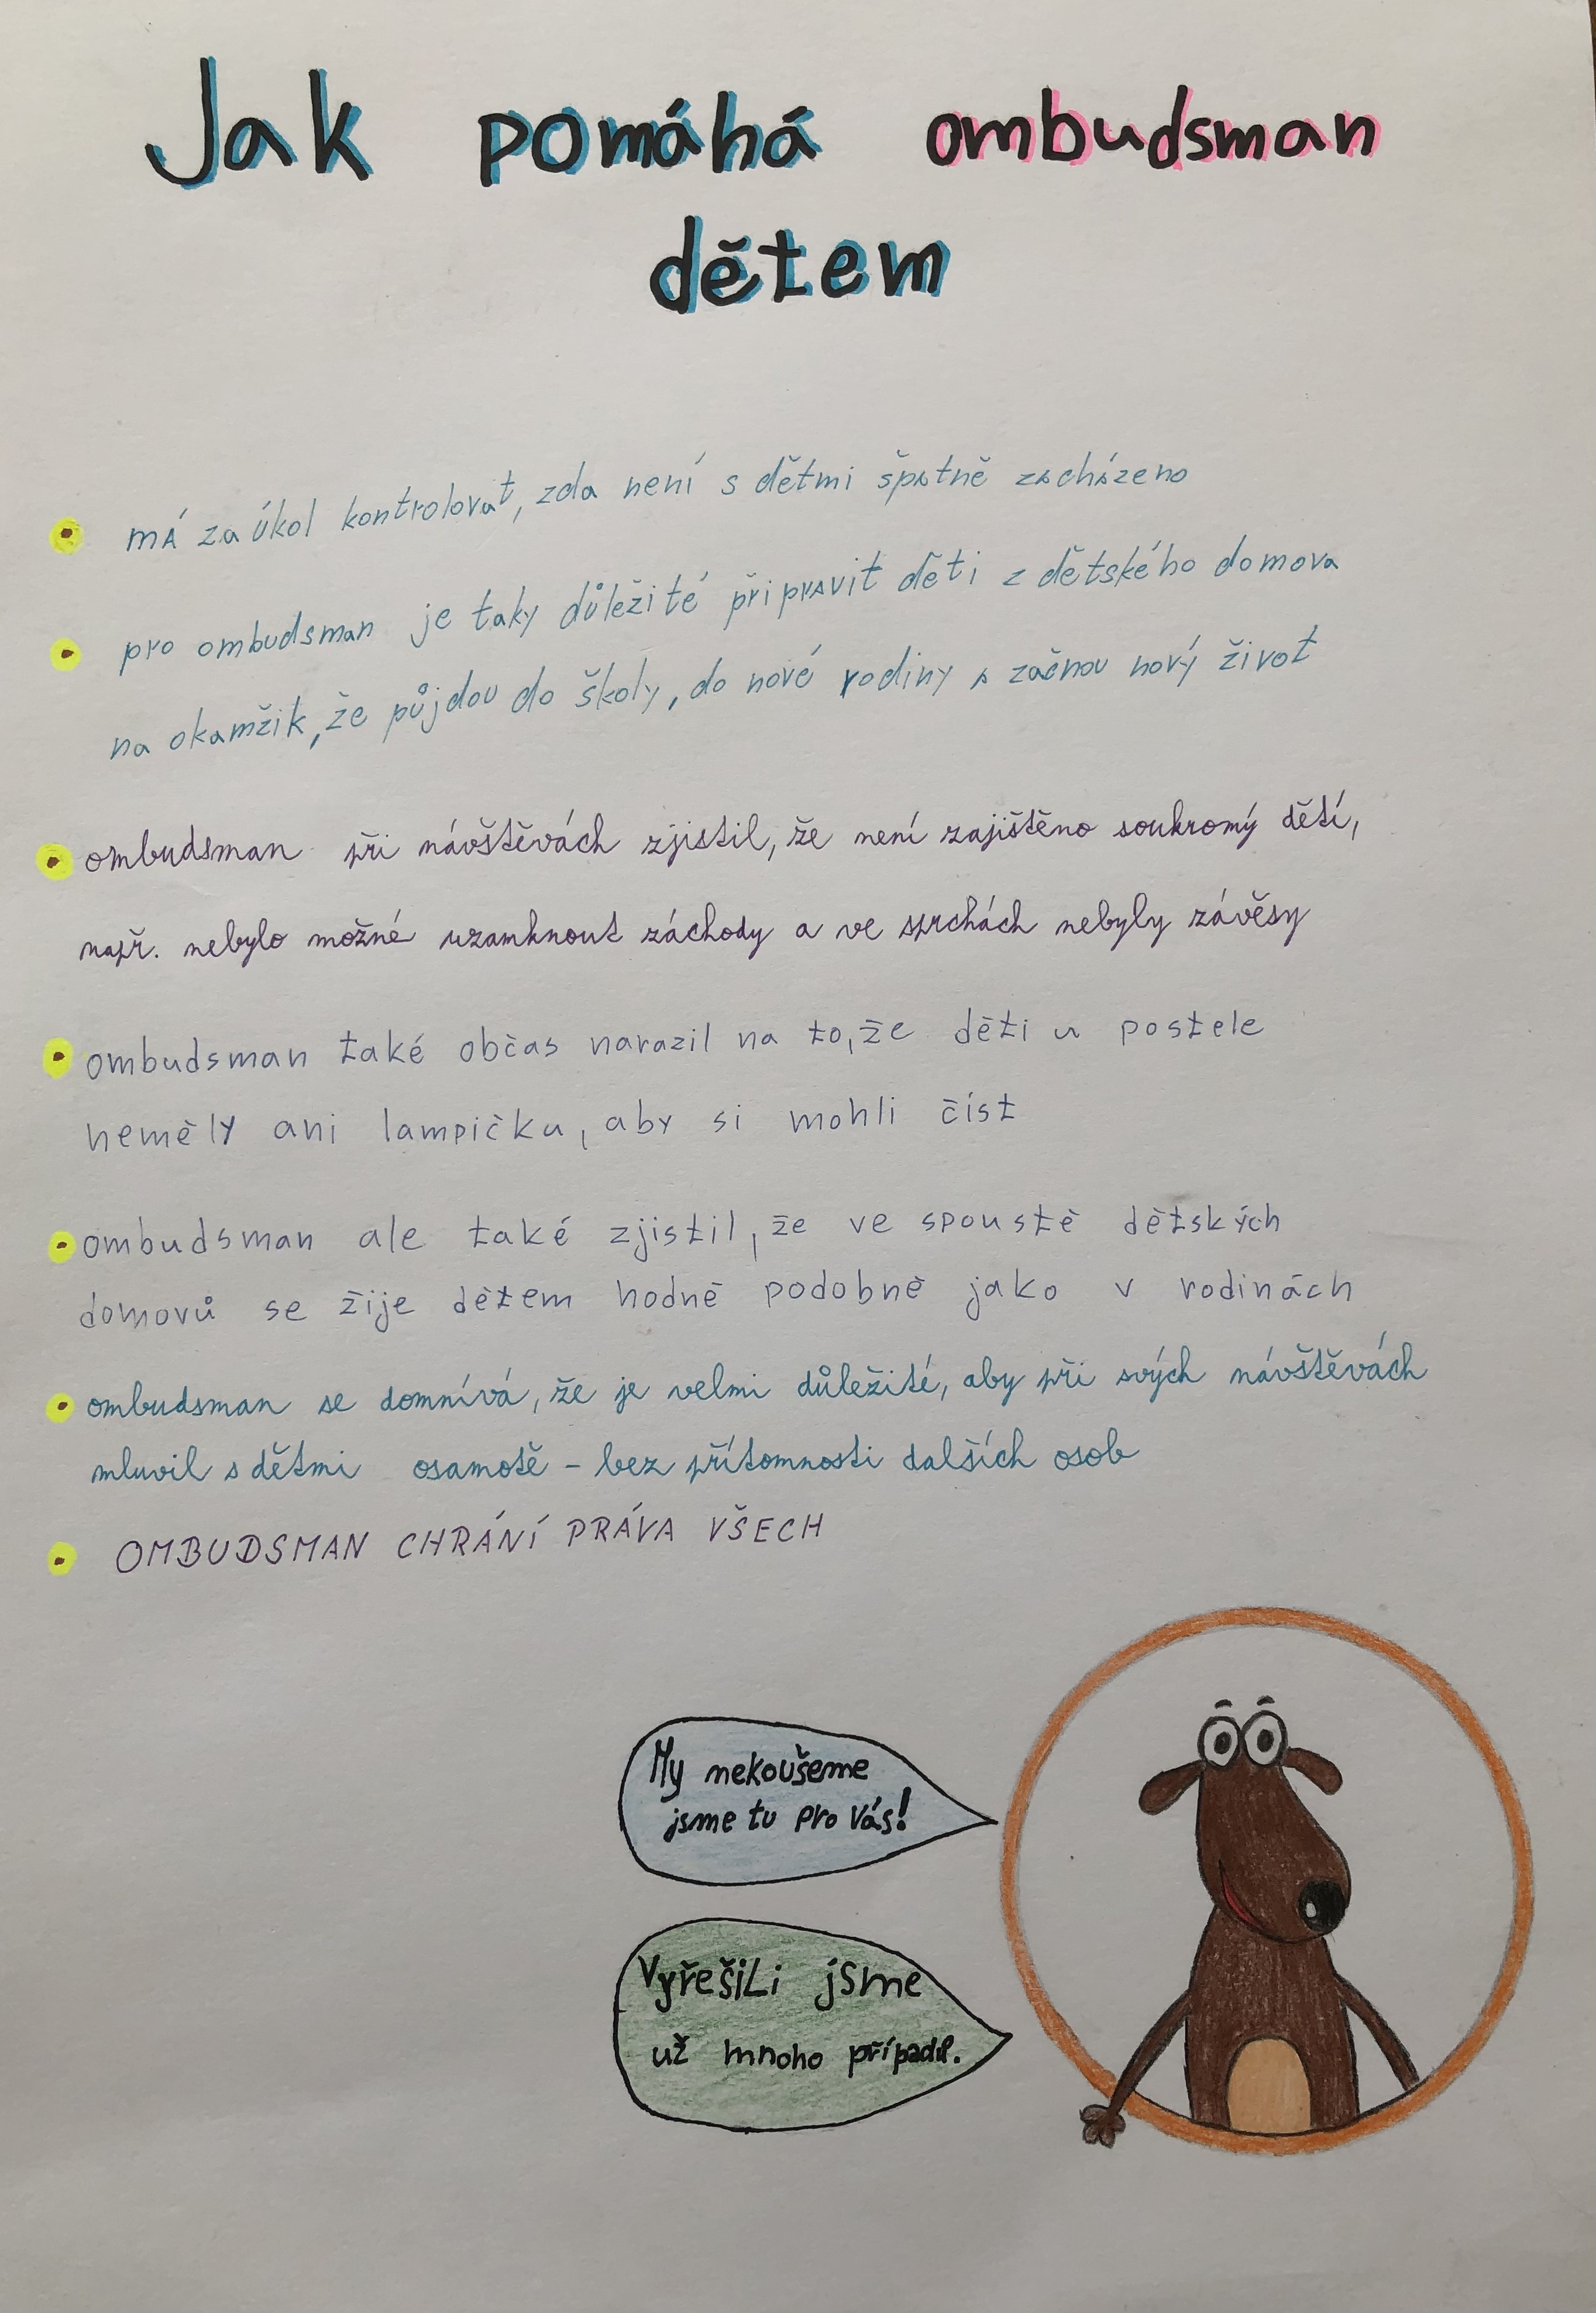 Jak pomáhá ombudsman
dětem
má za úkol kontrolovat, zda není s dětmi špatně zacházeno
pro ombudsman je taky důležité připravit děti z dětského domova
na okamžik, že půjdou do školy, do nové rodiny a začnou nový život
ombudsman při návštěvách zjistil, že není zajištěno soukromý dětí,
např. nebylo možné uzamknout záchody a ve sprchách nebyly závěsy
ombudsman také občas narazil na to, že děti u postele
neměly ani lampičku, aby si mohli číst
ombudsman ale také zjistil, že ve spoustě dětských
domovů se žije dětem hodně podobně jako v rodinách
ombudsman se domnívá, že je velmi důležité, aby při svých návštěvách
mluvil s dětmi osamotě - bez přítomnosti dalších osob
OMBUDSMAN CHRÁNÍ PRÁVA VŠECH
My nekoušeme
jsme tu pro Vás!
VyřešiLi jsme
už mnoho případů.